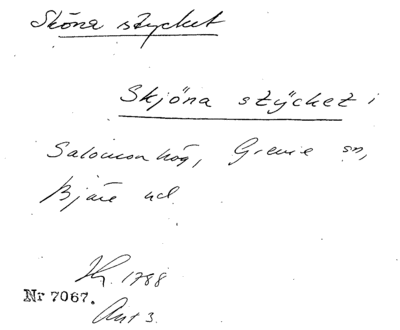 Sköna stycket
Skjöna stÿcket i
Salomonhög, Grevie sn,
Bjäre hd.
1788
Nr 7067.
Akt 3.